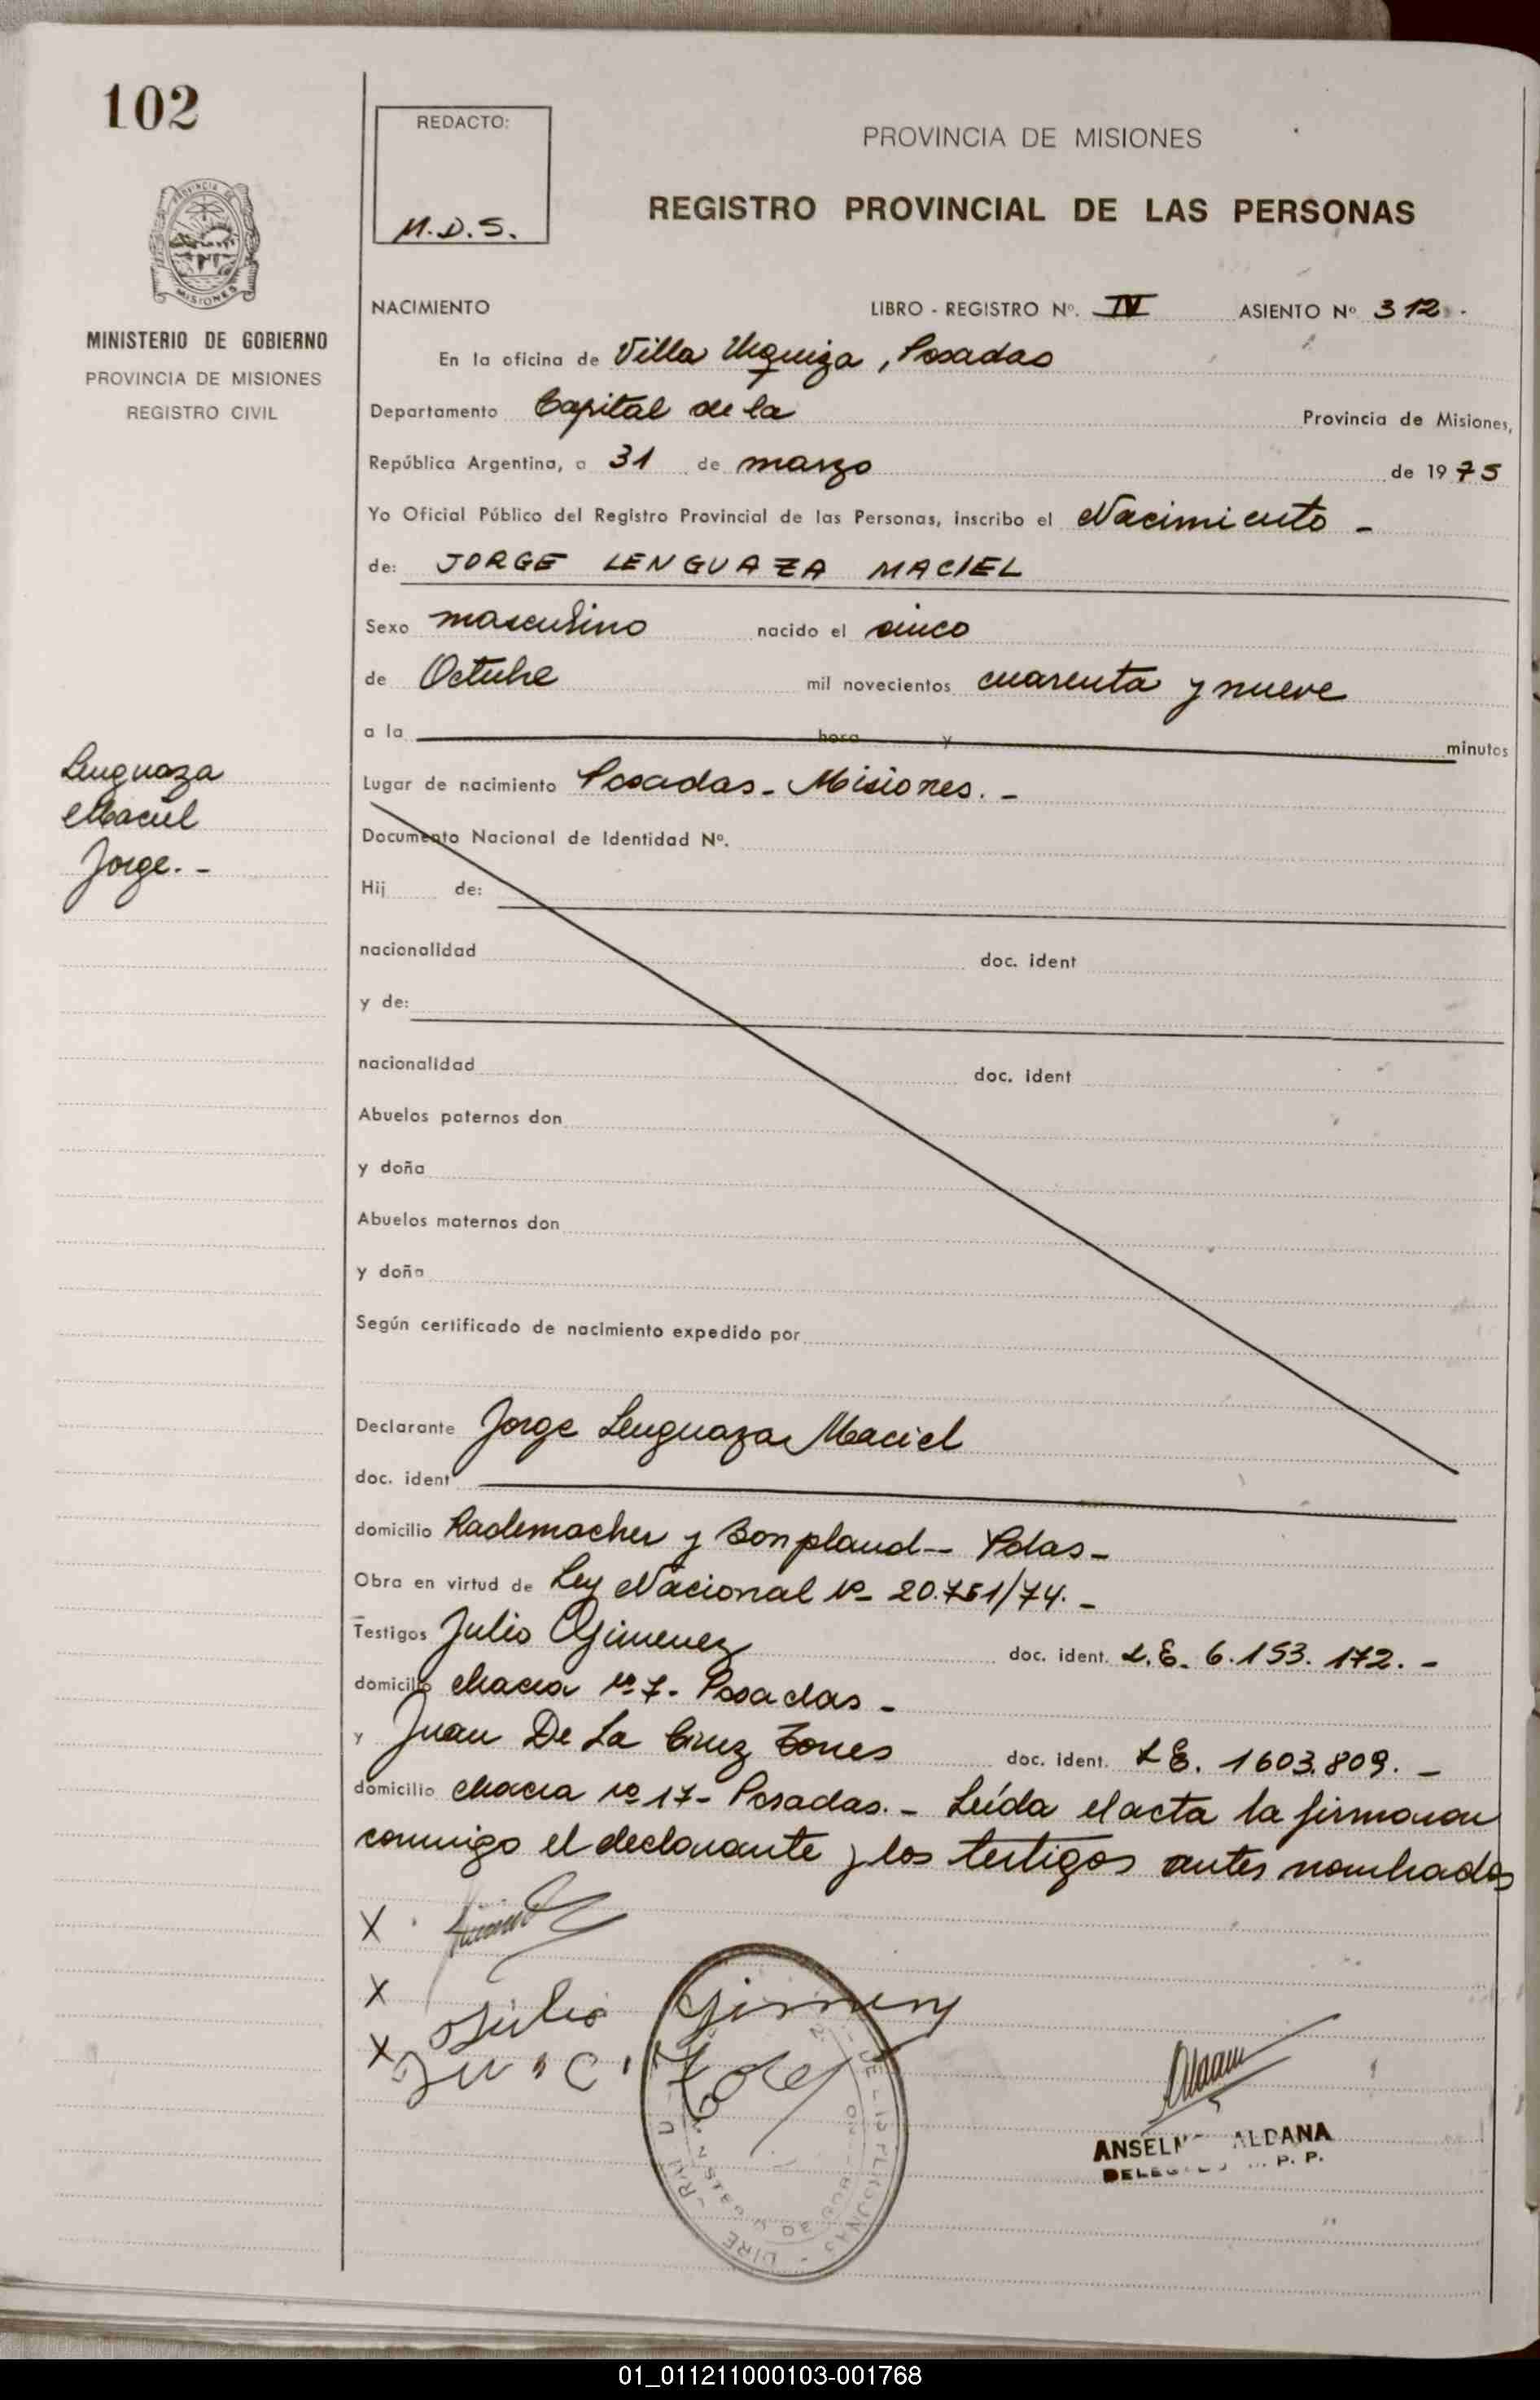 102
REDACTO:
M.D.S.
PROVINCIA DE MISIONES
REGISTRO PROVINCIAL DE LAS PERSONAS
PROVINCIA DE
MISIONES
MINISTERIO DE GOBIERNO
PROVINCIA DE MISIONES
REGISTRO CIVIL
NACIMIENTO LIBRO - REGISTRO Nº. IV ASIENTO Nº 312.-
En la oficina de Villa Urquiza, Posadas
Departamento Capital de la Provincia de Misiones,
República Argentina, a 31 de marzo de 1975
Yo Oficial Público del Registro Provincial de las Personas, inscribo el Nacimiento -
de: JORGE LENGUAZA MACIEL
Sexo masculino nacido el cinco
de Octubre mil novecientos cuarenta y nueve
a la hora y minutos
Lenguaza
Maciel
Jorge.-
Lugar de nacimiento Posadas - Misiones. -
Documento Nacional de Identidad Nº.
Hij de:
nacionalidad doc. ident
y de:
nacionalidad doc. ident
Abuelos paternos don
y doña
Abuelos maternos don
y doña
Según certificado de nacimiento expedido por
Declarante Jorge Lenguaza Maciel
doc. ident
domicilio Rademacher y Bonpland - Pdas -
Obra en virtud de Ley Nacional Nº 20.751/74. -
Testigos Julio Gimenez doc. ident. L.E. 6.153.172. -
domicilio chacra Nº 7 - Posadas -
y Juan De La Cruz Torres doc. ident. L.E. 1603.809. -
domicilio chacra Nº 17 - Posadas. - Leída el acta la firmaron
conmigo el declarante y los testigos antes nombrados
X
X Julio Gimenez
X
ALDANA
P. P.
01_011211000103-001768